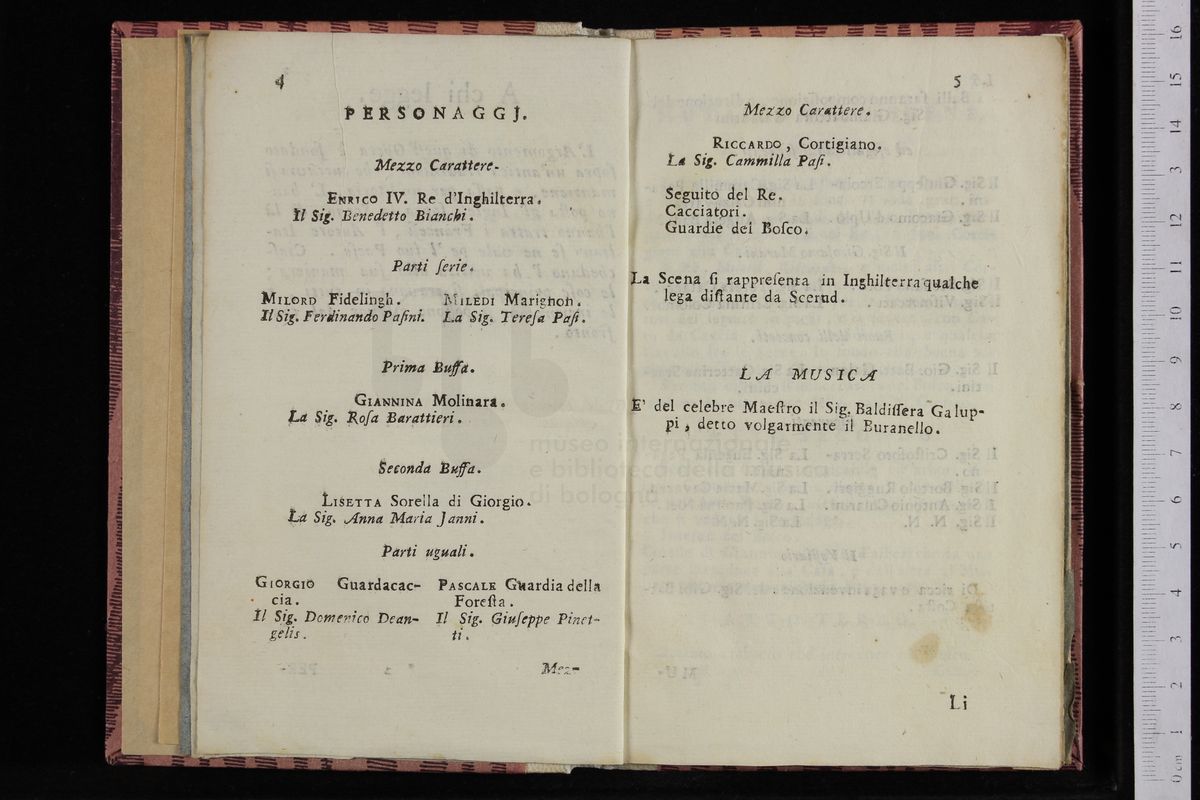 4
PERSONAGGJ.
Mezzo Carattere.
ENRICO IV. Re d'Inghilterra.
Il Sig. Benedetto Bianchi.
Parti ſerie.
MILORD Fidelingh. MILEDI Marignon.
Il Sig. Ferdinando Paſini. La Sig. Tereſa Paſi.
Prima Buffa.
GIANNINA Molinara.
La Sig. Roſa Barattieri.
Seconda Buffa.
LISETTA Sorella di Giorgio.
La Sig. Anna Maria Janni.
Parti uguali.
GIORGIO Guardacac-
cia.
Il Sig. Domenico Dean-
gelis.
PASCALE Guardia della
Foreſta.
Il Sig. Giuſeppe Pinet-
ti.
Mez-
5
Mezzo Carattere.
RICCARDO, Cortigiano.
La Sig. Cammilla Paſi.
Seguito del Re.
Cacciatori.
Guardie del Boſco.
La Scena ſi rappreſenta in Inghilterra qualche
lega diſtante da Scerud.
LA MUSICA
E' del celebre Maeſtro il Sig. Baldiſſera Galup-
pi, detto volgarmente il Buranello.
Li
museo internazionale
e biblioteca della musica
di bologna
0 cm 1 2 3 4 5 6 7 8 9 10 11 12 13 14 15 16